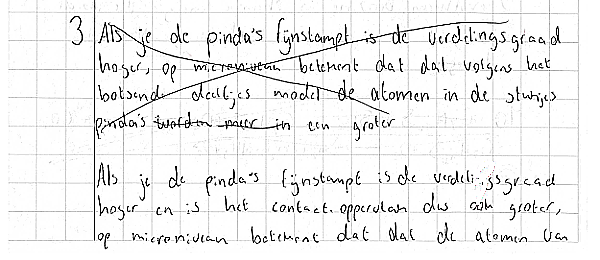 3 Als je de pinda's fijnstampt is de verdelingsgraad
hoger, op microniveau betekent dat dat volgens het
botsende deeltjes model de atomen in de stukjes
pinda's worden meer in een groter
Als je de pinda's fijnstampt is de verdelingsgraad
hoger en is het contact.oppervlak dus ook groter,
op microniveau betekent dat dat de atomen van